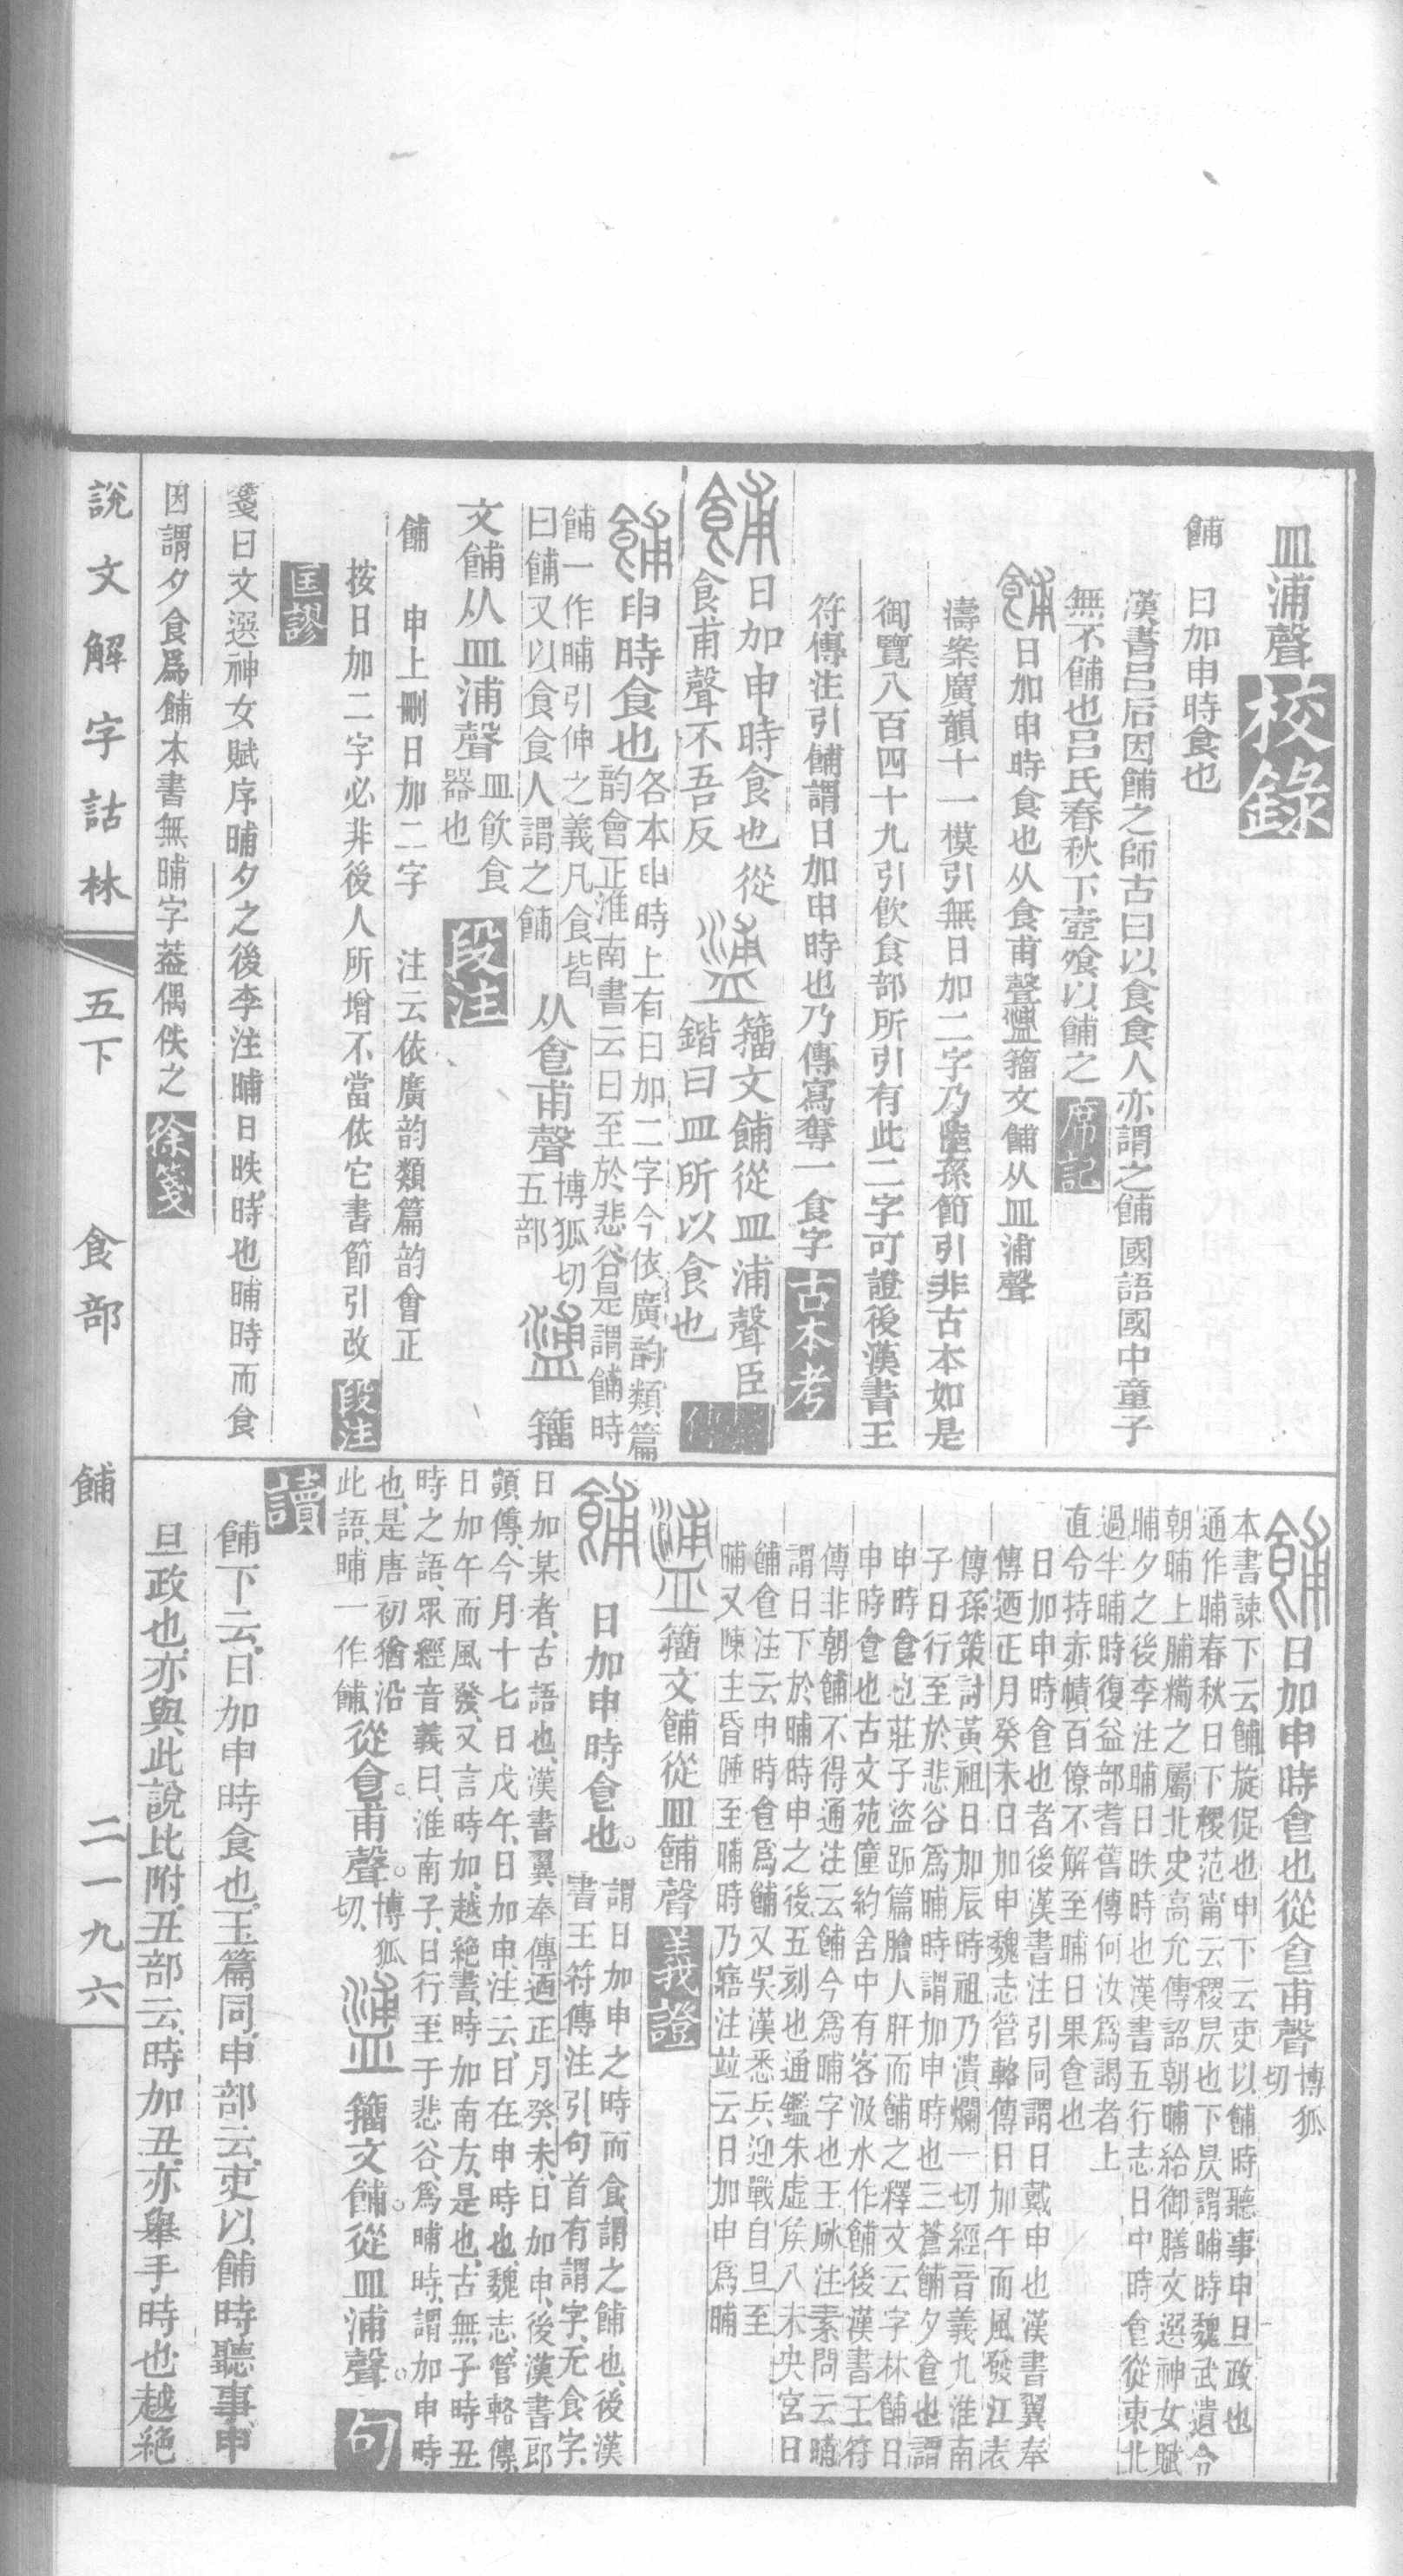 皿浦聲校錄
餔　日加申時食也
漢書呂后因餔之師古曰以食食人亦謂之餔國語國中童子
無不餔也呂氏春秋下壺飧以餔之席記
餔日加申時食也从食甫聲𥂈籀文餔从皿浦聲
濤案廣韻十一模引無日加二字乃陸孫節引非古本如是
御覽八百四十九引飲食部所引有此二字可證後漢書王
符傳注引餔謂日加申時也乃傳寫奪一食字古本考
餔日加申時食也從食甫聲不吾反𥂈籀文餔從皿浦聲臣鍇曰皿所以食也
餔申時食也各本申時上有日加二字今依廣韵類篇
韵會正淮南書云日至於悲谷是謂餔時
餔一作晡引伸之義凡食皆
曰餔又以食食人謂之餔从食甫聲博狐切五部𥂈籀
文餔从皿浦聲皿飲食器也段注
餔　申上刪日加二字　注云依廣韵類篇韵會正
按日加二字必非後人所增不當依它書節引改段注
匡謬
箋曰文選神女賦序晡夕之後李注晡日昳時也晡時而食
因謂夕食爲餔本書無晡字葢偶佚之徐箋
餔日加申時食也從食甫聲博狐切
本書諫下云餔旋促也申下云吏以餔時聽事申旦政也
通作晡春秋日下稷范甯云稷昃也下昃謂晡時魏武遺令
朝晡上脯糒之屬北史高允傳詔朝晡給御膳文選神女賦
晡夕之後李注晡日昳時也漢書五行志日中時食從東北
過半晡時復益部耆舊傳何汝爲謁者上
直令持赤幘百僚不解至晡日果食也
日加申時食也者後漢書注引同謂日戴申也漢書翼奉
傳迺正月癸未日加申魏志管輅傳日加午而風發江表
傳孫策討黃祖日加辰時祖乃潰爛一切經音義九淮南
子日行至於悲谷爲晡時謂加申時也三蒼餔夕食也謂
申時食也莊子盜跖篇膾人肝而餔之釋文云字林餔日
申時食也古文苑僮約舍中有客汲水作餔後漢書王符
傳非朝餔不得通注云餔今爲晡字也王砅注素問云晡
謂日下於晡時申之後五刻也通鑑朱虛矦入未央宮日
餔食注云申時食爲餔又吳漢悉兵迎戰自旦至
晡又陳主昏睡至晡時乃寤注竝云日加申爲晡
𥂈籀文餔從皿餔聲義證
餔日加申時食也。謂日加申之時而食謂之餔也、後漢
書王符傳注引、句首有謂字、无食字、
日加某者、古語也、漢書翼奉傳迺正月癸未、日加申、後漢書郎
顗傳、今月十七日戊午、日加申、注云、日在申時也、魏志、管輅傳
日加午而風發、又言時加、越絶書、時加南方、是也、古無子時丑
時之語、眾經音義曰、淮南子、日行至于悲谷、爲晡時、謂加申時
也、是唐初猶沿
此語、晡一作餔、從食。甫聲。博狐切、𥂈籀文餔。從皿浦聲。句
讀
餔下云、日加申時食也、玉篇同、申部云、吏以餔時聽事、申
旦政也、亦與此說比附、丑部云、時加丑、亦舉手時也、越絶
說文解字詁林　五下　食部　餔　二一九六